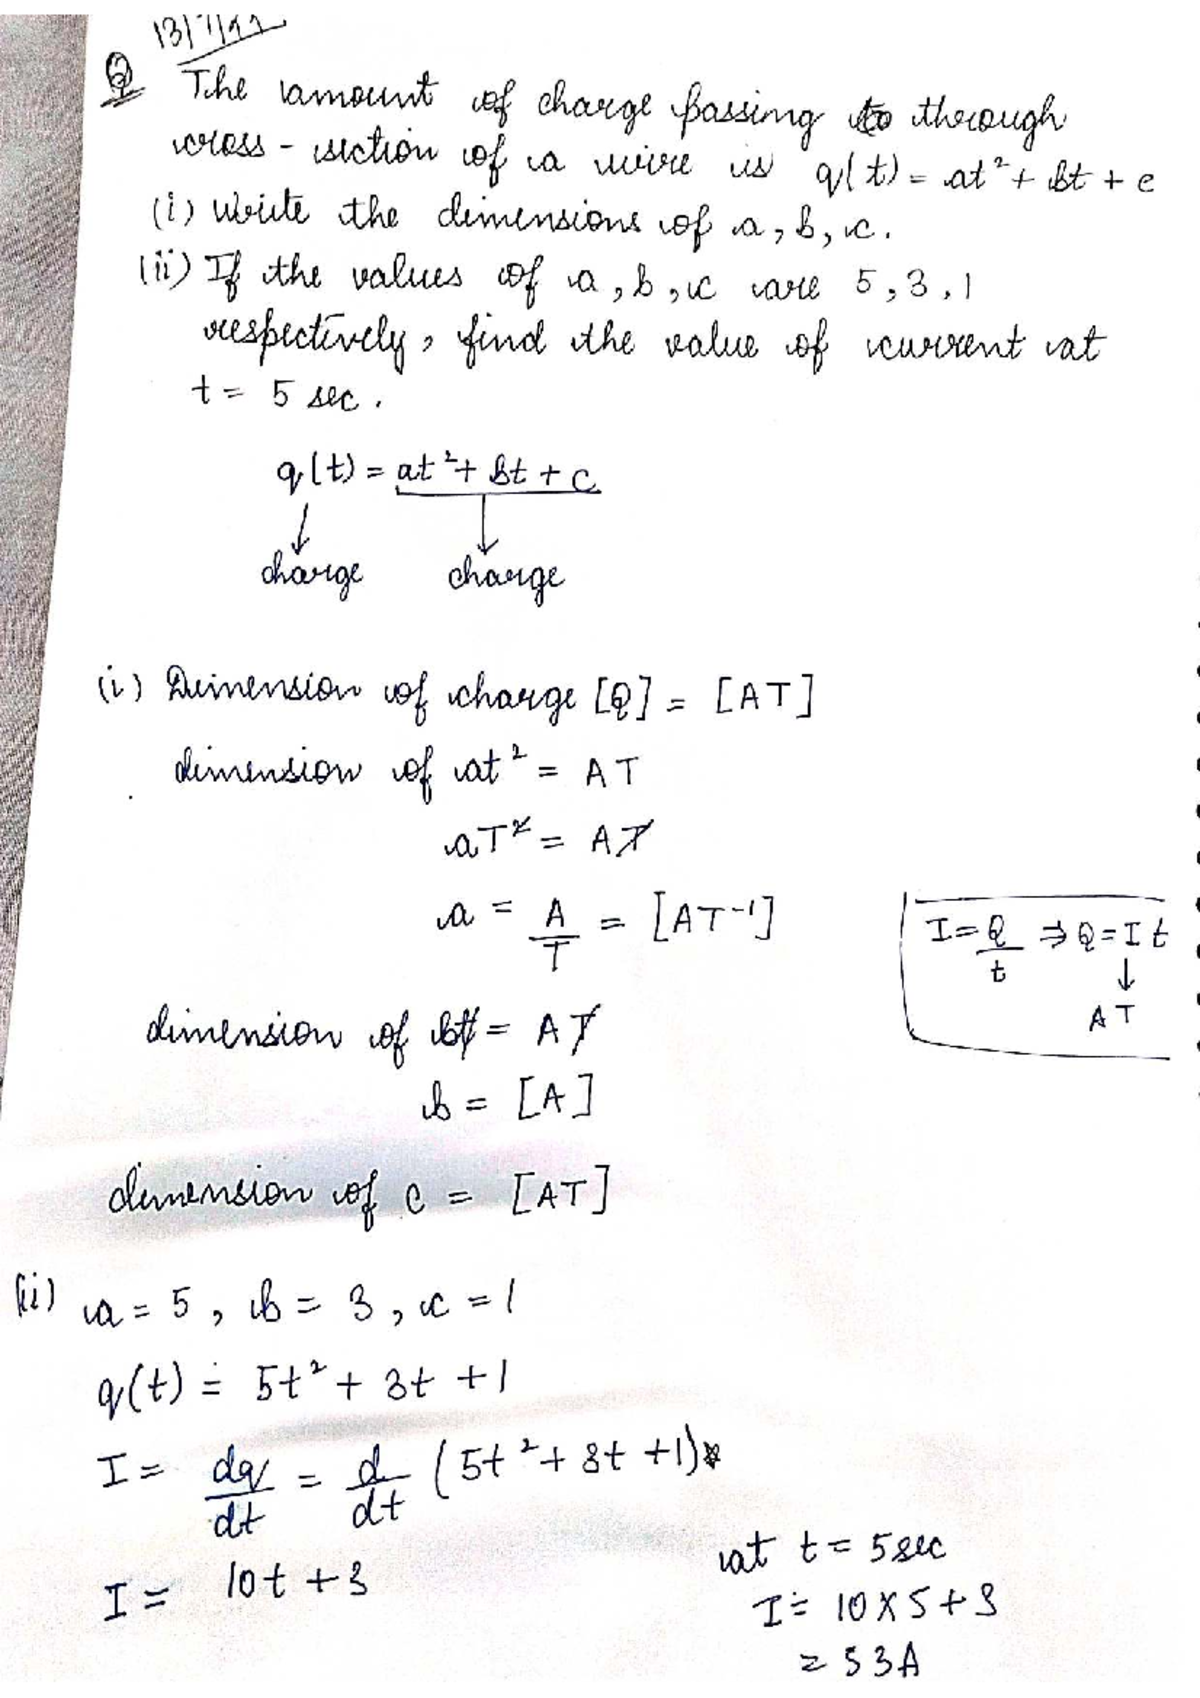 13/7/22
Q The amount of charge passing to through
cross-section of a wire is q(t) = at² + bt + c
(i) Write the dimensions of a, b, c.
(ii) If the values of a, b, c are 5, 3, 1
respectively, find the value of current at
t = 5 sec.
q(t) = at² + bt + c
↓ ↓
charge charge
(i) Dimension of charge [Q] = [AT]
dimension of at² = AT
aT² = AT
a = A/T = [AT⁻¹]
I = Q/t ⇒ Q = I t
↓
AT
dimension of bt = AT
b = [A]
dimension of c = [AT]
(ii) a = 5, b = 3, c = 1
q(t) = 5t² + 3t + 1
I = dq/dt = d/dt (5t² + 3t + 1)
I = 10t + 3
at t = 5 sec
I = 10 × 5 + 3
= 53A